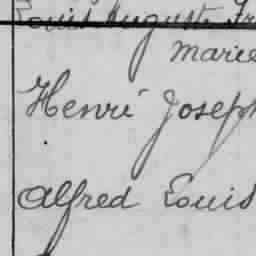 Louis Auguste Fr
Marie
Henri Joseph
Alfred Louis